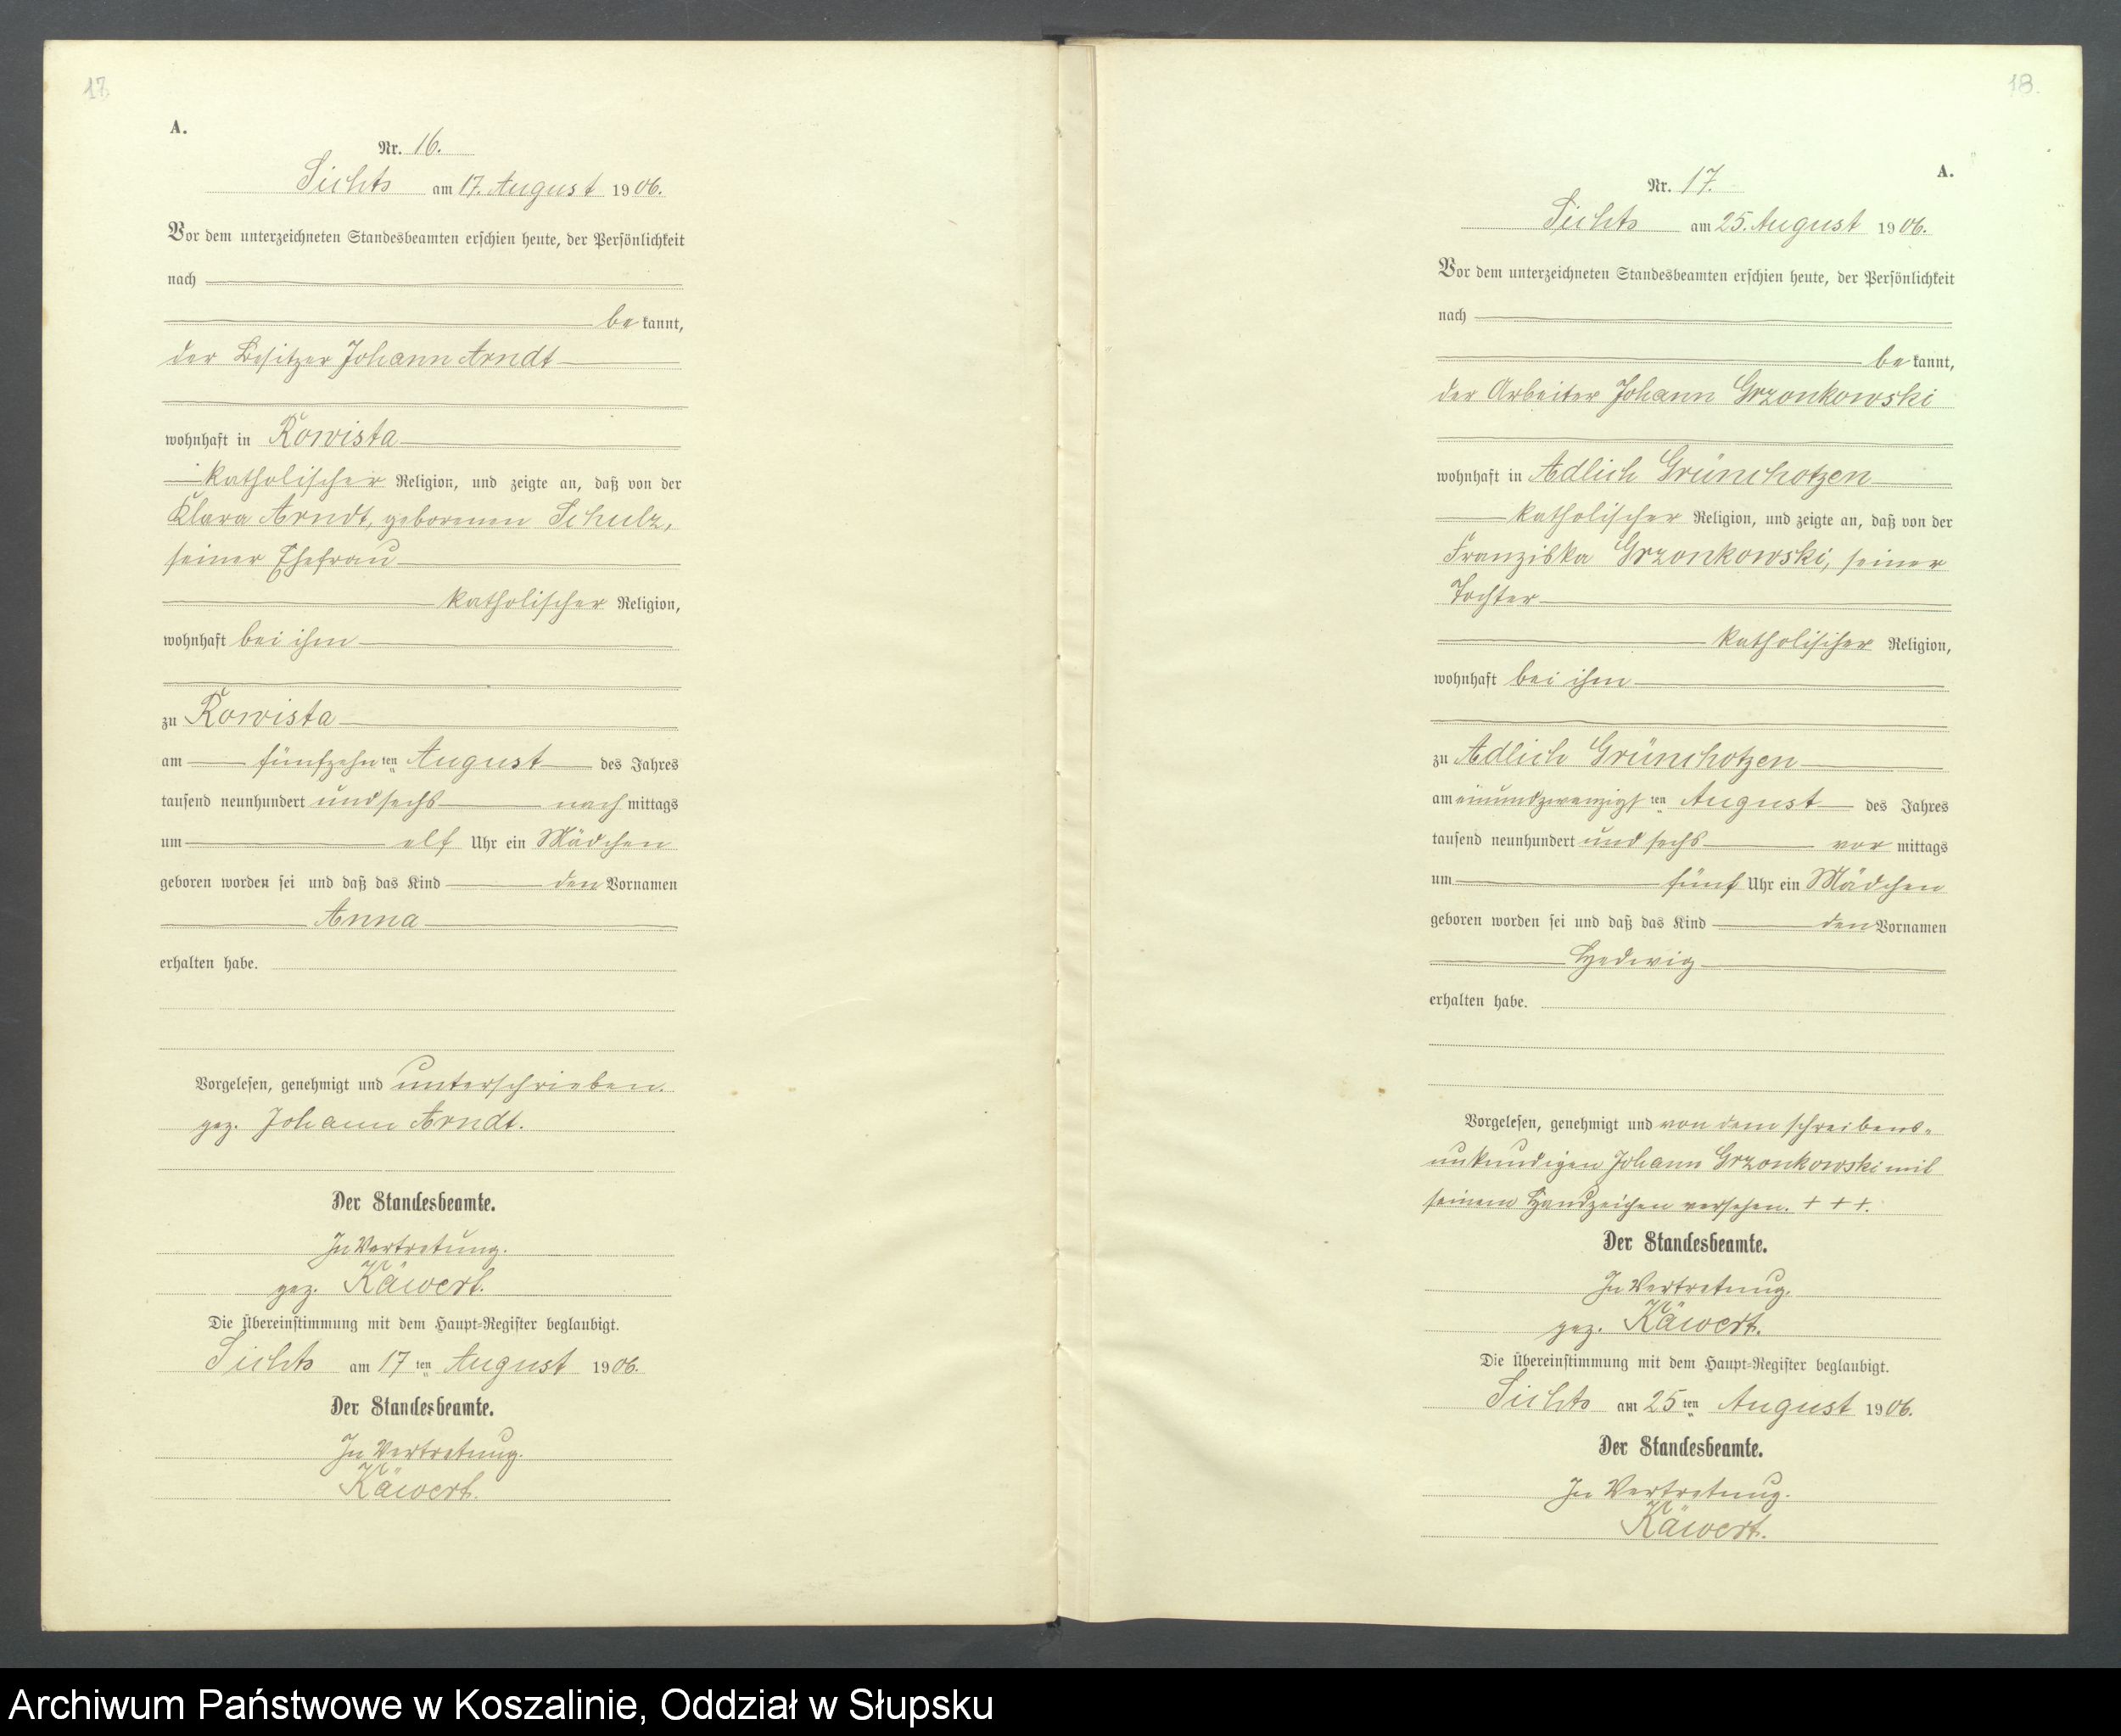 17.
A.
Nr. 16.
Sichts am 17. August 1906.
Vor dem unterzeichneten Standesbeamten erschien heute, der Persönlichkeit
nach
be kannt,
der Besitzer Johann Arndt
wohnhaft in Rowista
katholischer Religion, und zeigte an, daß von der
Klara Arndt, geborenen Schulz,
seiner Ehefrau
katholischer Religion,
wohnhaft bei ihm
zu Rowista
am fünfzehn ten August des Jahres
tausend neunhundert und sechs nach mittags
um elf Uhr ein Mädchen
geboren worden sei und daß das Kind den Vornamen
Anna
erhalten habe.
Vorgelesen, genehmigt und unterschrieben.
gez. Johann Arndt.
Der Standesbeamte.
In Vertretung.
gez. Käwert.
Die Übereinstimmung mit dem Haupt-Register beglaubigt.
Sichts am 17 ten August 1906.
Der Standesbeamte.
In Vertretung.
Käwert.
18.
A.
Nr. 17.
Sichts am 25. August 1906.
Vor dem unterzeichneten Standesbeamten erschien heute, der Persönlichkeit
nach
be kannt,
der Arbeiter Johann Grzonkowski
wohnhaft in Adlich Grünchotzen
katholischer Religion, und zeigte an, daß von der
Franziska Grzonkowski, seiner
Tochter
katholischer Religion,
wohnhaft bei ihm
zu Adlich Grünchotzen
am einundzwanzigs ten August des Jahres
tausend neunhundert und sechs vor mittags
um fünf Uhr ein Mädchen
geboren worden sei und daß das Kind den Vornamen
Hedwig
erhalten habe.
Vorgelesen, genehmigt und von dem schreibens-
unkundigen Johann Grzonkowski mit
seinem Handzeichen versehen. + + +.
Der Standesbeamte.
In Vertretung.
gez. Käwert.
Die Übereinstimmung mit dem Haupt-Register beglaubigt.
Sichts am 25 ten August 1906.
Der Standesbeamte.
In Vertretung.
Käwert.
Archiwum Państwowe w Koszalinie, Oddział w Słupsku